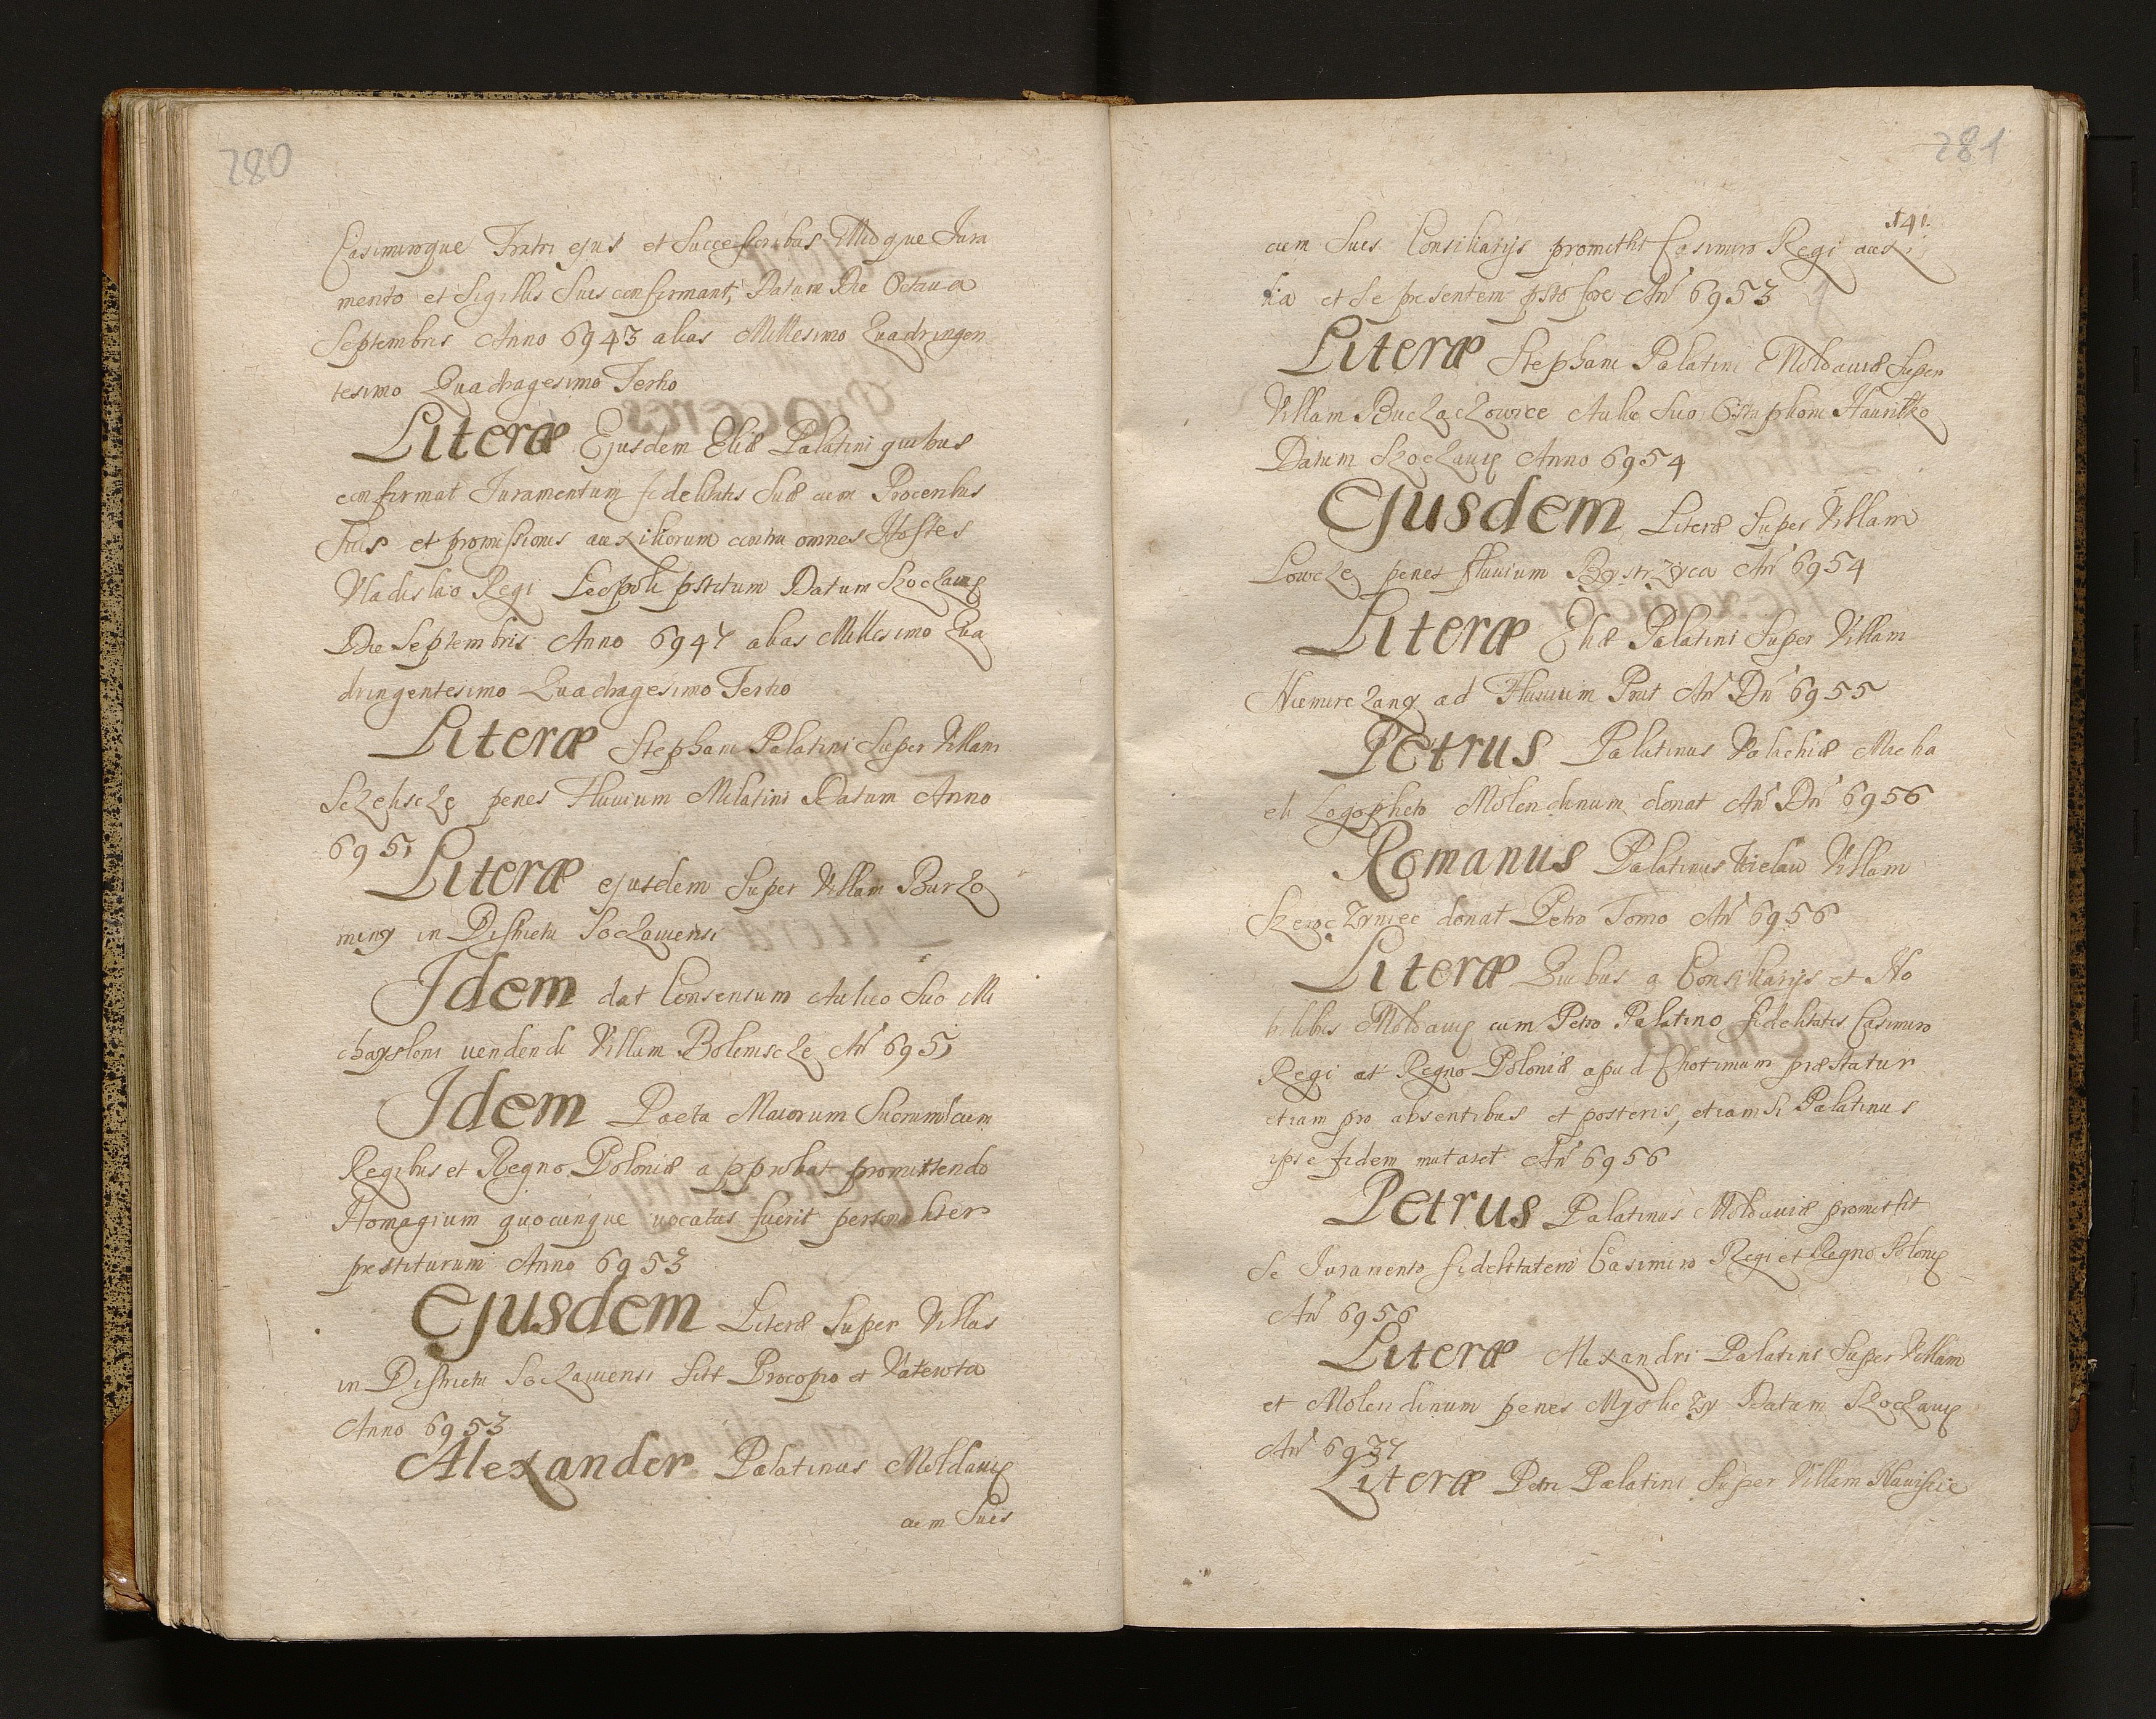 280
Casimiroque Fratri ejus et Successoribus Illiosque Jura
mento et Sigillis Suis confirmant, Datum Die Octaua
Septembris Anno 6943 alias Millesimo Quadringen
tesimo Quadragesimo Tertio
Literæ Ejusdem Eliæ Palatini quibus
confirmat Juramentum fidelitatis Suæ cum Proceribus
Suis et promissionis auxiliorum contra omnes Hostes
Vladislao Regi Leopoli pstitum Datum Soczauę
Die Septembris Anno 6947 alias Millesimo Qua
dringentesimo Quadragesimo Tertio
Literæ Stephani Palatini Super Villam
Szeliscze penes Fluuium Milatini Datum Anno
6951
Literæ ejusdem Super Villam Burlo
miny in Districtu Soczauiensi
Idem dat Consensum Aulico Suo Mi
chayloni uendendi Villam Bolemscze Añ 6951
Idem Pacta Maiorum Suorum cum
Regibus et Regno Poloniæ approbat promittendo
Homagium quocunque uocatus fuerit personaliter
prestiturum Anno 6953
Ejusdem Literæ Super Villas
in Districtu Soczauiensi Sitt Procopio et
Anno 6953
Alexander Palatinus Moldauię
cum Suis
281
141.
cum Suis Consiliarijs promittit Casimiro Regi auxi
lia et se presentem psto fore Añ 6953
Literæ Stephani Palatini Moldauiæ Super
Villam Buczaczowice Aulico Suo Ostaphoni Hauritko
Datum Szoczauię Anno 6954
Ejusdem Literæ Super Villam
Lowcze penes fluuium Bystrzyca Añ 6954
Literæ Eliæ Palatini Super Villam
Niemirczany ad Fluuium Prut Añ Dñ 6955
Petrus Palatinus Valachiæ Micha
eli Logopheto Molendinum donat Añ Dñ 6956
Romanus Palatinus Villam
donat Petro Tomo Añ 6956
Literæ Quibus a Consiliarijs et No
bilibus Moldauię cum Petro Palatino fidelitatis Casimiro
Regi et Regno Poloniæ apud Chotimum præstatur
etiam pro absentibus et posteris, etiamsi Palatinus
ipse fidem mutaret Añ 6956
Petrus Palatinus Moldauiæ promittit
Se Juramento fidelitatem Casimiro Regi et Regno Polonię
Añ 6956
Literæ Alexandri Palatini Super Villam
et Molendinum penes Myśliczy Datum Szoczauię
Añ 6937
Literæ Petri Palatini Super Villam Hauiscie